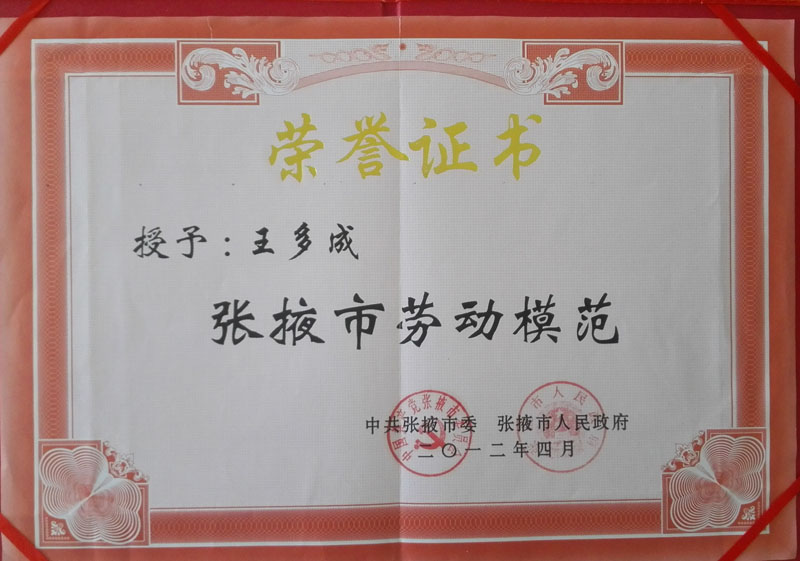 荣誉证书
授予：王多成
张掖市劳动模范
中共张掖市委 张掖市人民政府
二〇一二年四月